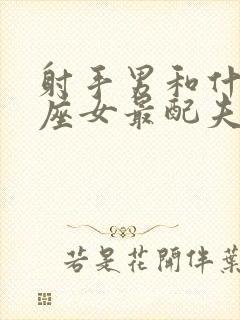 射手男和什
座女最配夫
若是花開伴葉